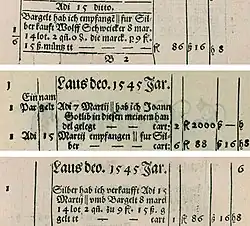 Adi 15 ditto.
Bargelt hab ich empfangē || fur Sil
ber kaufft Wolff Schweicker 8 mar.
14 lot. 2 qtl. 08. die marck. p 9 fl.
15 ß. müntz
fl 86 ß 16 h
B 2
Laus deo. 1545 Jar.
Ein nam
1 Par gelt Adi 7 Martij || hab ich Joann
Gotlib in diesen meinen han
del gelegt cart: 2 fl 2000 ß — h
1 Adi 15 Martij empfangen || fur Sil-
ber cart: 6 fl 88 ß 16 h 8
Laus deo. 1545 Jar. 6
1 Silber hab ich verkaufft Adi 15
Martij || vmb Bargelt 8 marck
14 lot 2 qtl. zů 9 fl. 15 ß. 
gelt cart: 1 fl 86 ß 16 h 8